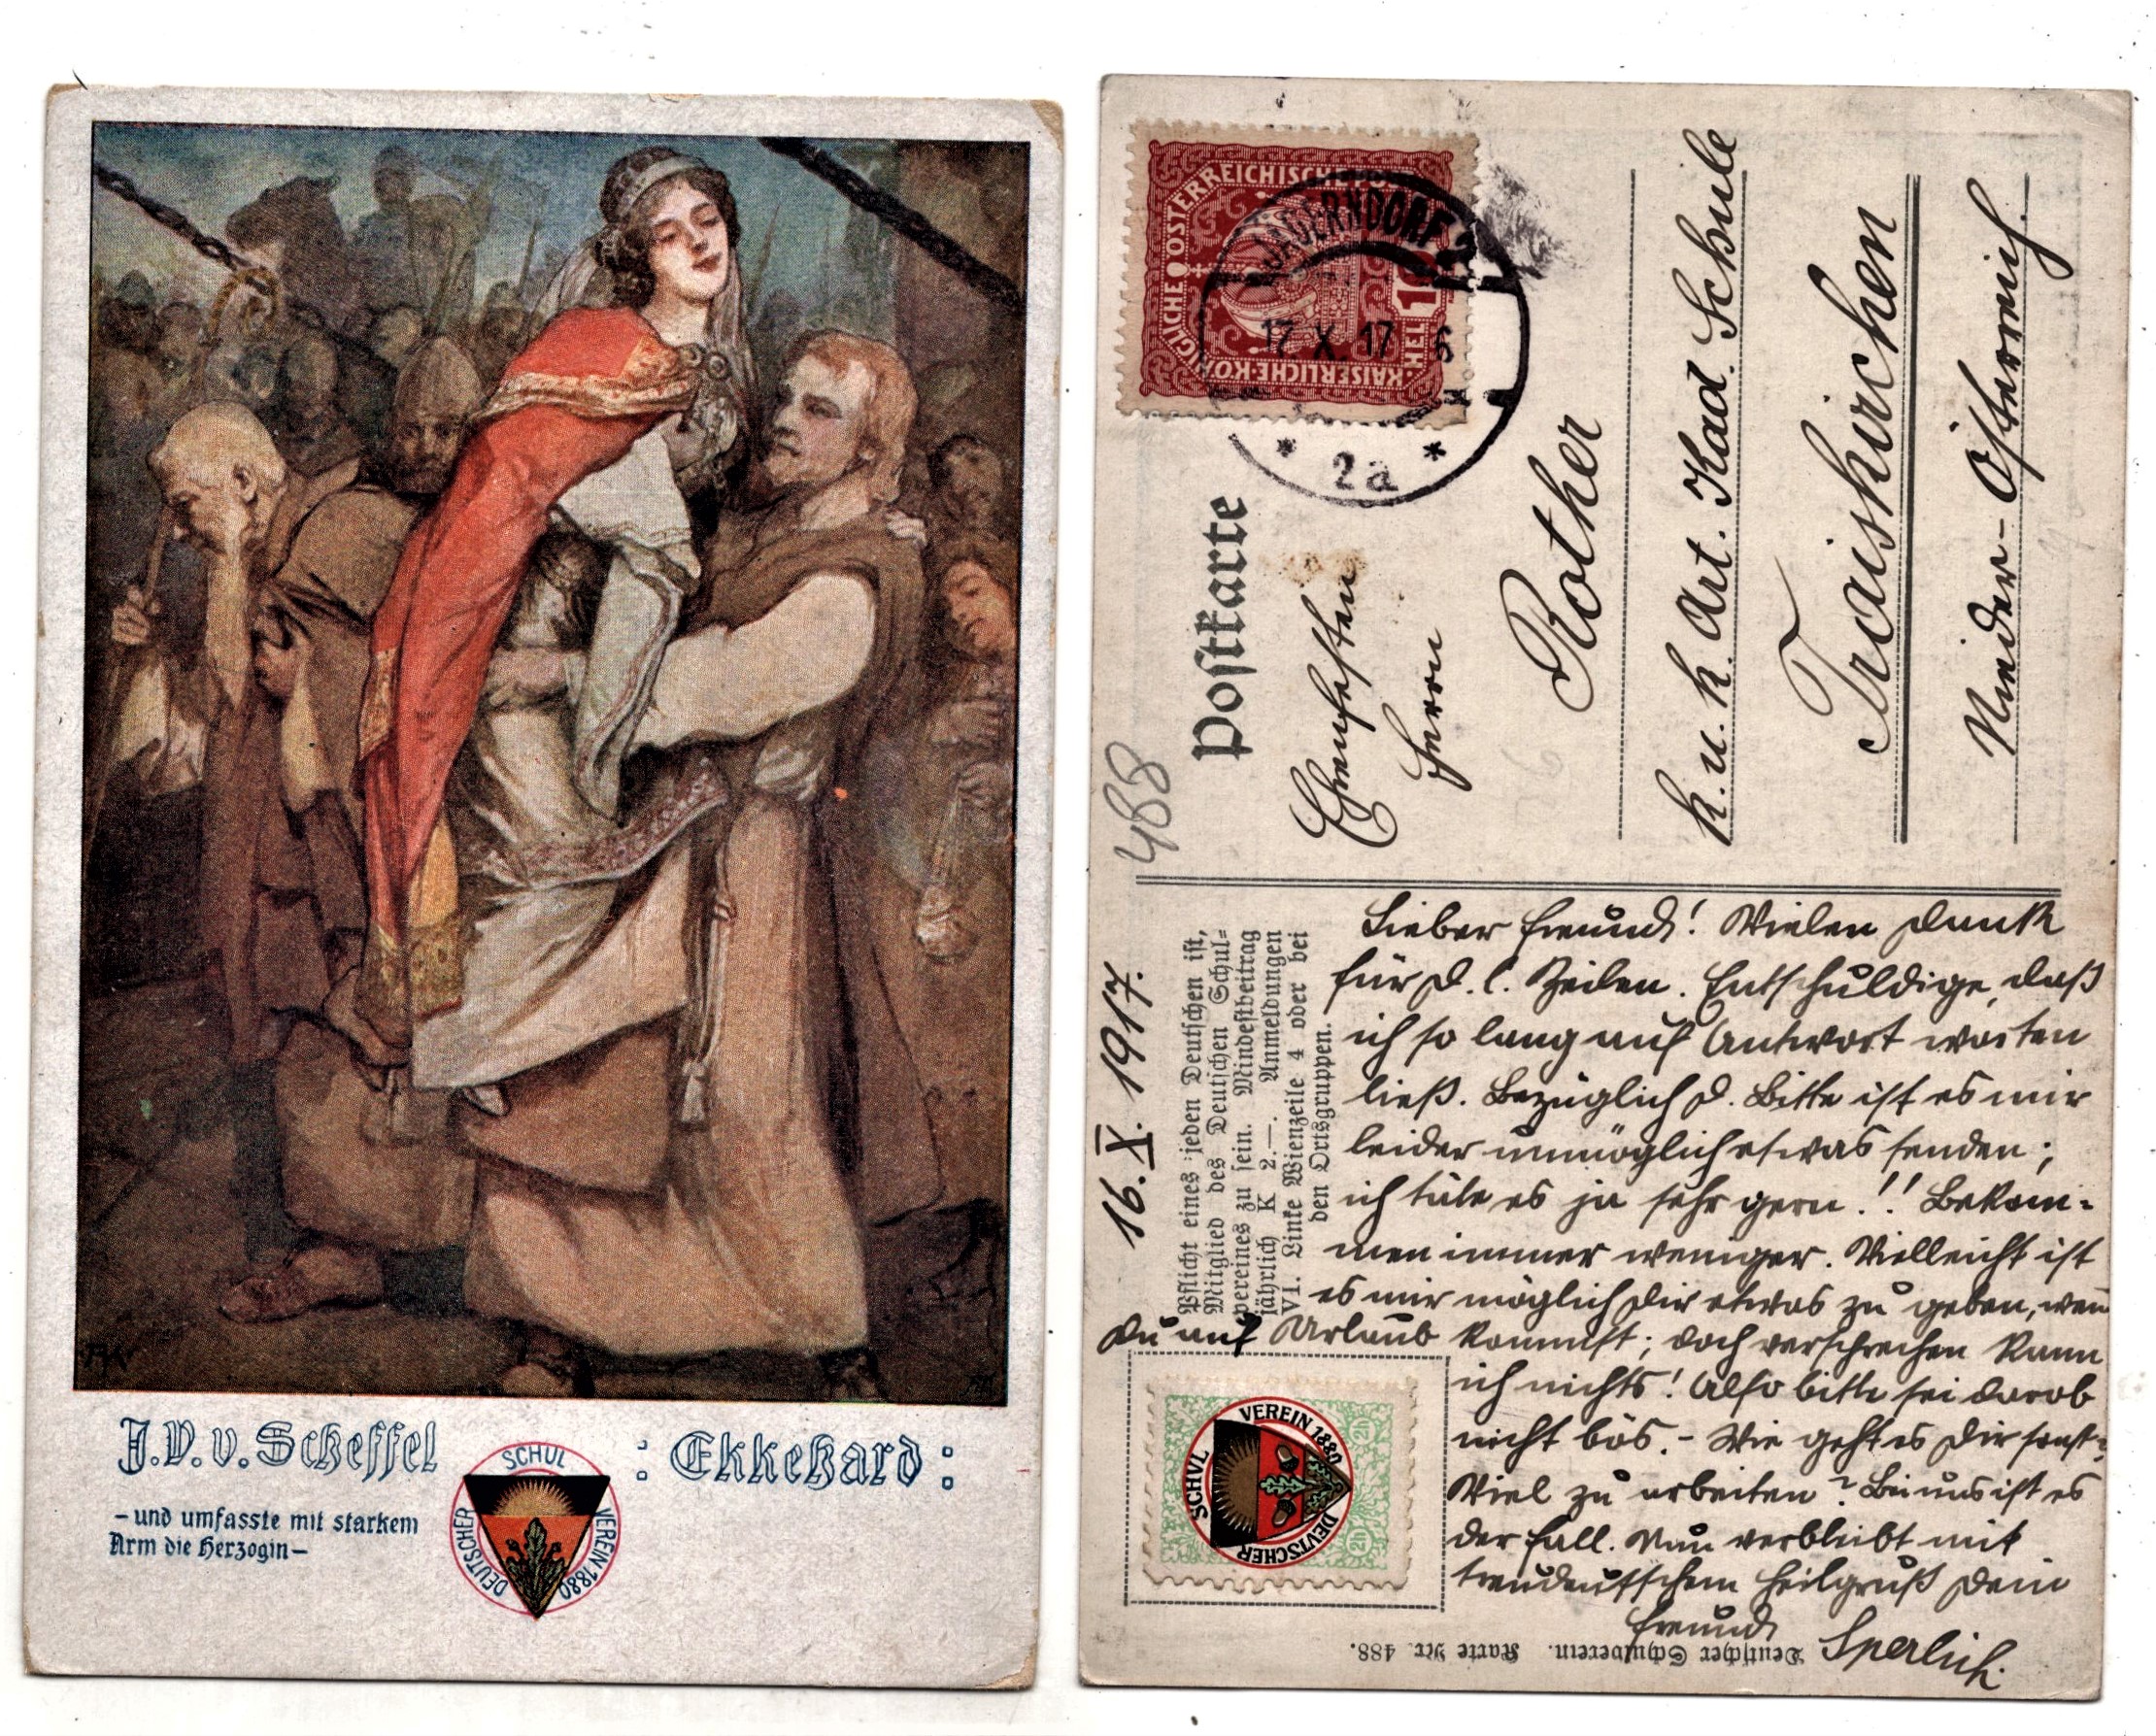 J.V.v. Scheffel : Ekkehard :
- und umfasste mit starkem
Arm die Herzogin -
DEUTSCHER SCHUL VEREIN 1880
KAISERLICHE KÖNIGLICHE ÖSTERREICHISCHE POST
HEL
JÄGERNDORF 2
17 X 17 6
* 2a *
Postkarte
488
Ehrenfesten
Herrn
Rother
k. u. k. Art. Kad. Schule
Traiskirchen
Nieder-Österreich.
16. X. 1917.
Pflicht eines jeden Deutschen ist,
Mitglied des Deutschen Schul-
vereines zu sein. Mindestbeitrag
jährlich K 2.—. Anmeldungen
VI. Linke Wienzeile 4 oder bei
den Ortsgruppen.
Lieber Freund! Vielen Dank
für D. l. Zeilen. Entschuldige, daß
ich so lang auf Antwort warten
ließ. Bezüglich D. Bitte ist es mir
leider unmöglich etwas senden;
ich täte es ja sehr gern!! Bekom-
men immer weniger. Vielleicht ist
es mir möglich Dir etwas zu geben, wenn
Du auf Urlaub kommst; doch versprechen kann
ich nichts! Also bitte sei darob
nicht bös. - Wie geht es Dir sonst?
Viel zu arbeiten? Bei uns ist es
der Fall. Nun verbleibt mit
treudeutschem Heilgruß Dein
Freund
Sperlich.
DEUTSCHER SCHUL VEREIN 1880
2h 2h
Deutscher Schulverein. Karte Nr. 488.